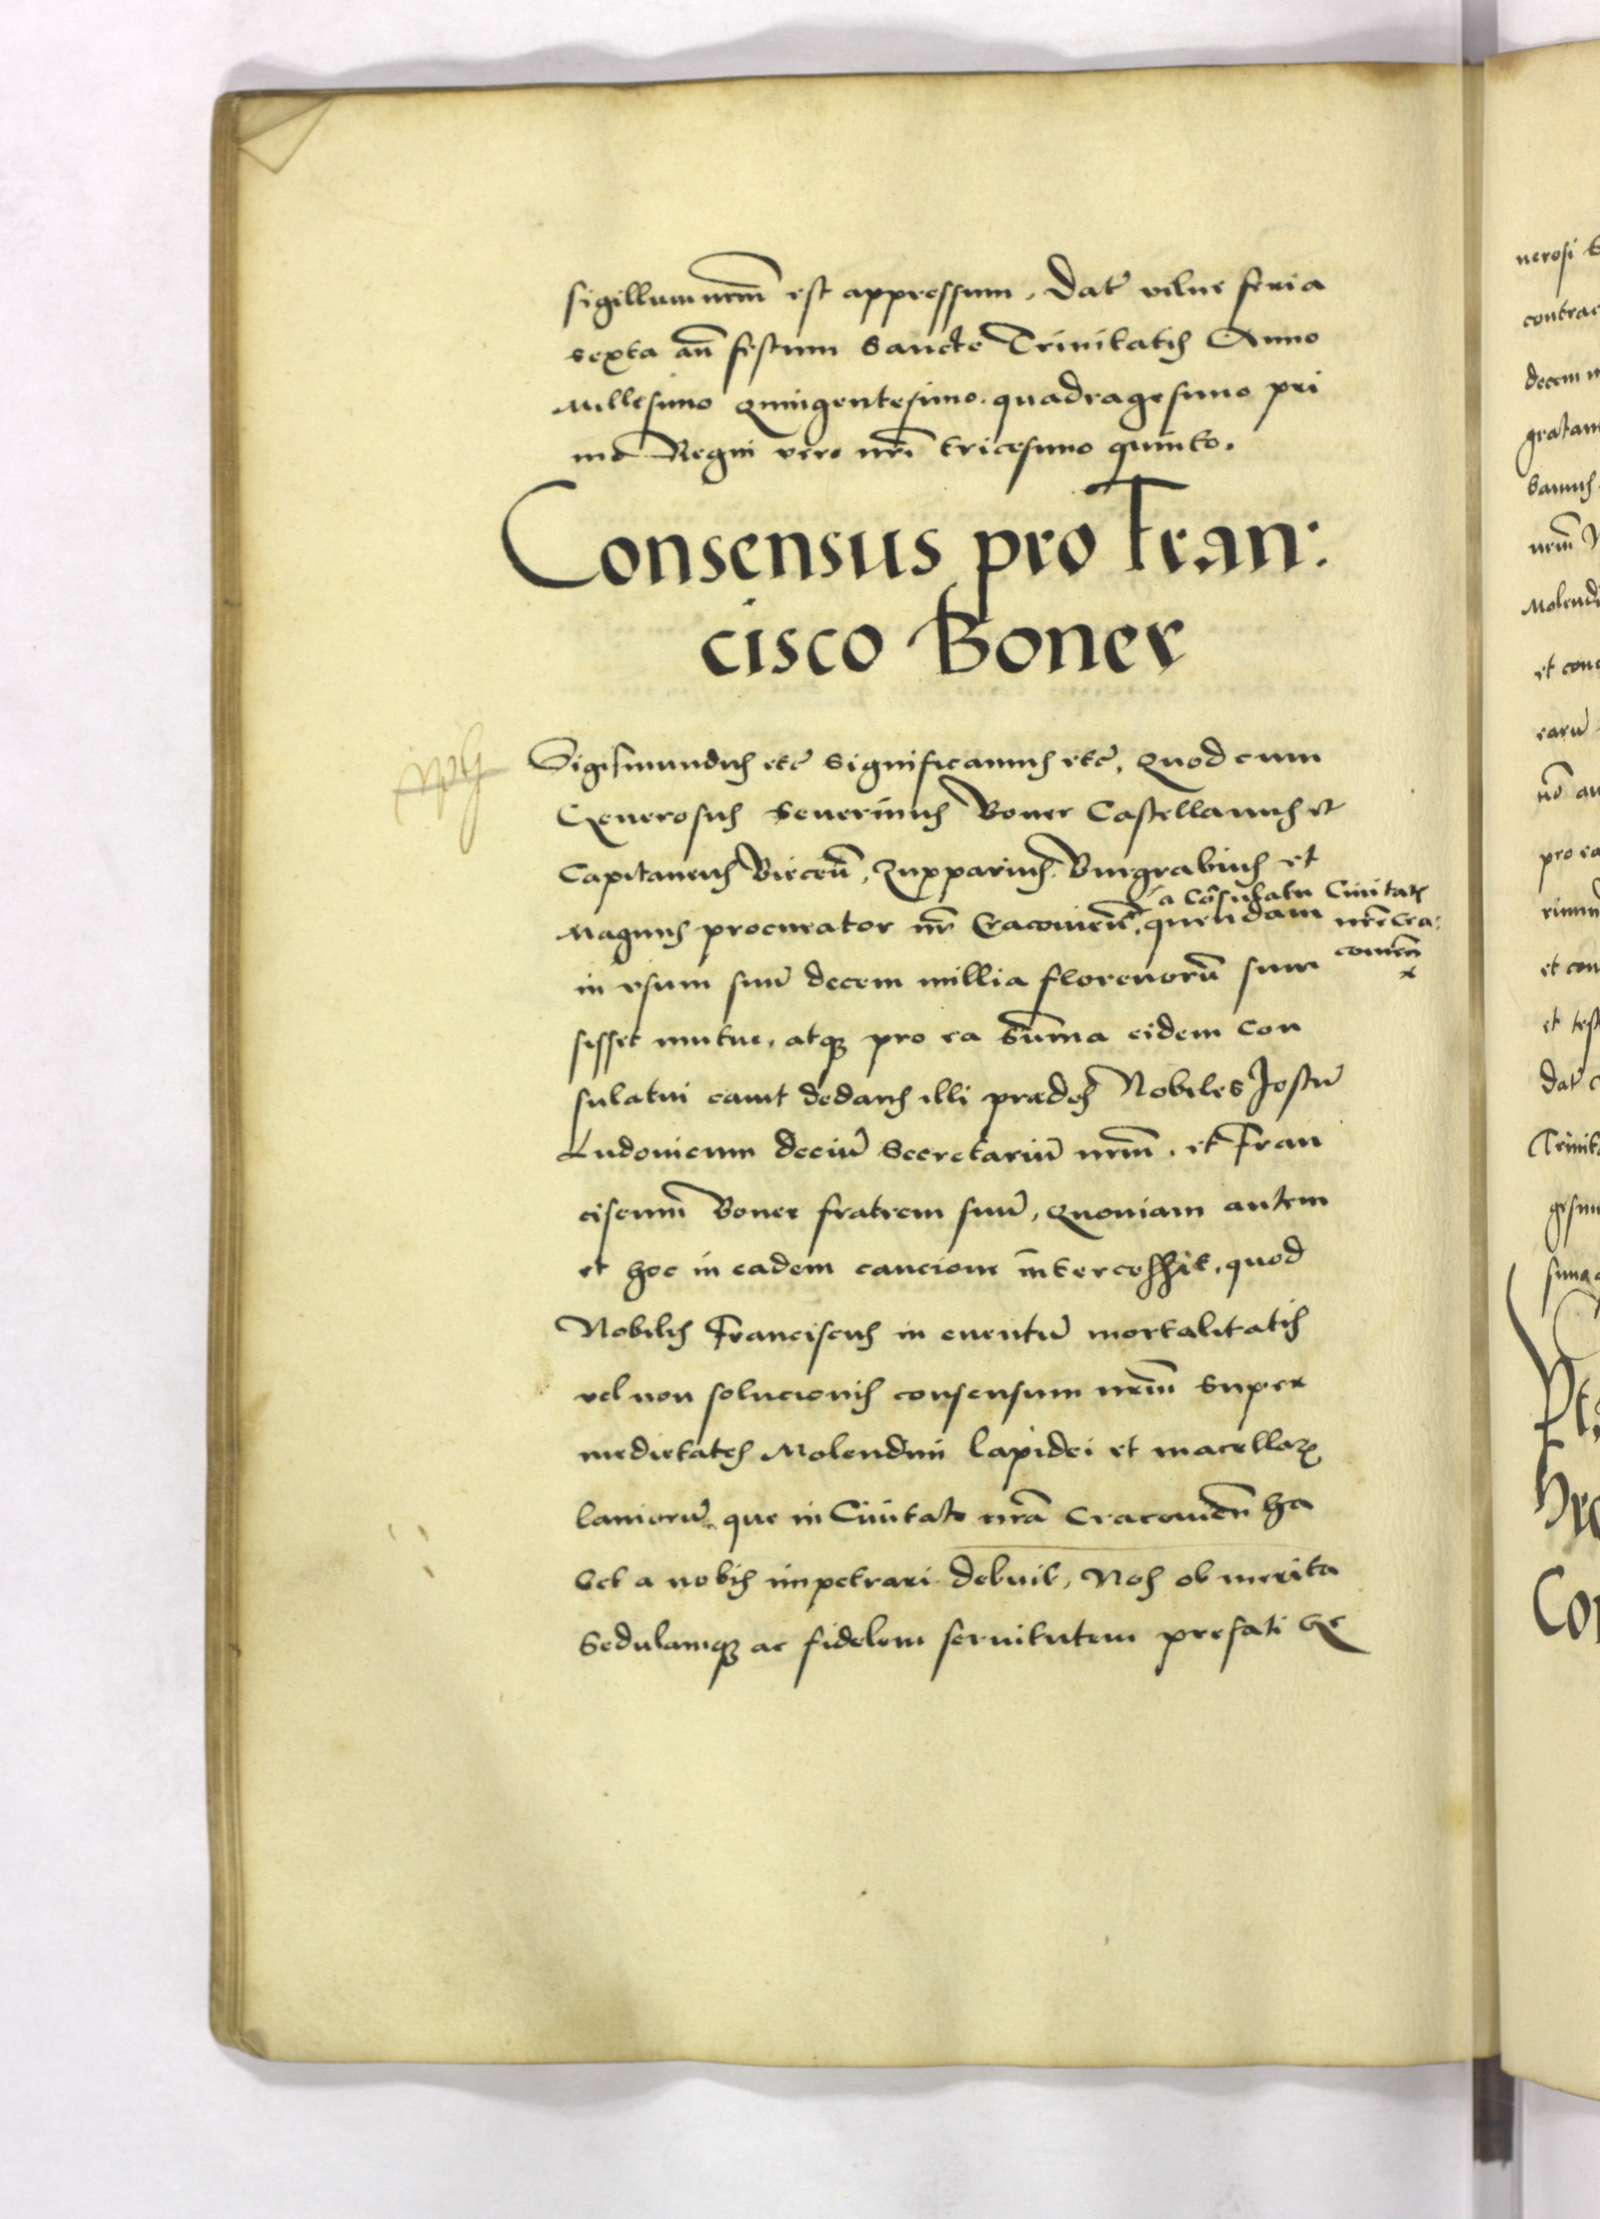 sigillum nrm̄ est appressum. Dat̄ vilne feria
sexta an̄ festum Sancte Trinitatis Anno
Millesimo Quingentesimo. quadragesimo pri
mo Regni vero nr̄i tricesimo quinto.
Consensus pro Fran:
cisco Boner
Sigismundus etc̄ Significamus etc̄, Quod cum
Generosus Severinus Boner Castellanus et
Capitaneus Biecen̄, Zupparius Burgrabius et
a Cōsulatu Civitatis
Magnus procurator nr̄ Cracovien̄, quendam nrē Cra:
covien̄
in vsum suū decem millia florenorū sump
sisset mutue, atq; pro ea Sum̄a eidem Con
sulatui cavit dedans illi prædes Nobiles Jostū
Ludovicum Deciū Secretariū nrm̄. et Fran
ciscum Boner fratrem suū, Quoniam autem
et hoc in eadem caucione intercessit, quod
Nobilis Franciscus in eventū mortalitatis
vel non solucionis consensum nrm̄ super
medietates Molendini lapidei et macellor
laniorū que in Civitate nrā Cracovien̄ ha
bet a nobis impetrari debuit, Nos ob merita
Sedulamq; ac fidelem servitutem prefati Ge
nerosi
contrac
decem m
gratam
nrm̄
Molendi
et conc
earū
pro ea
et con
et test
Dat̄
Trinit